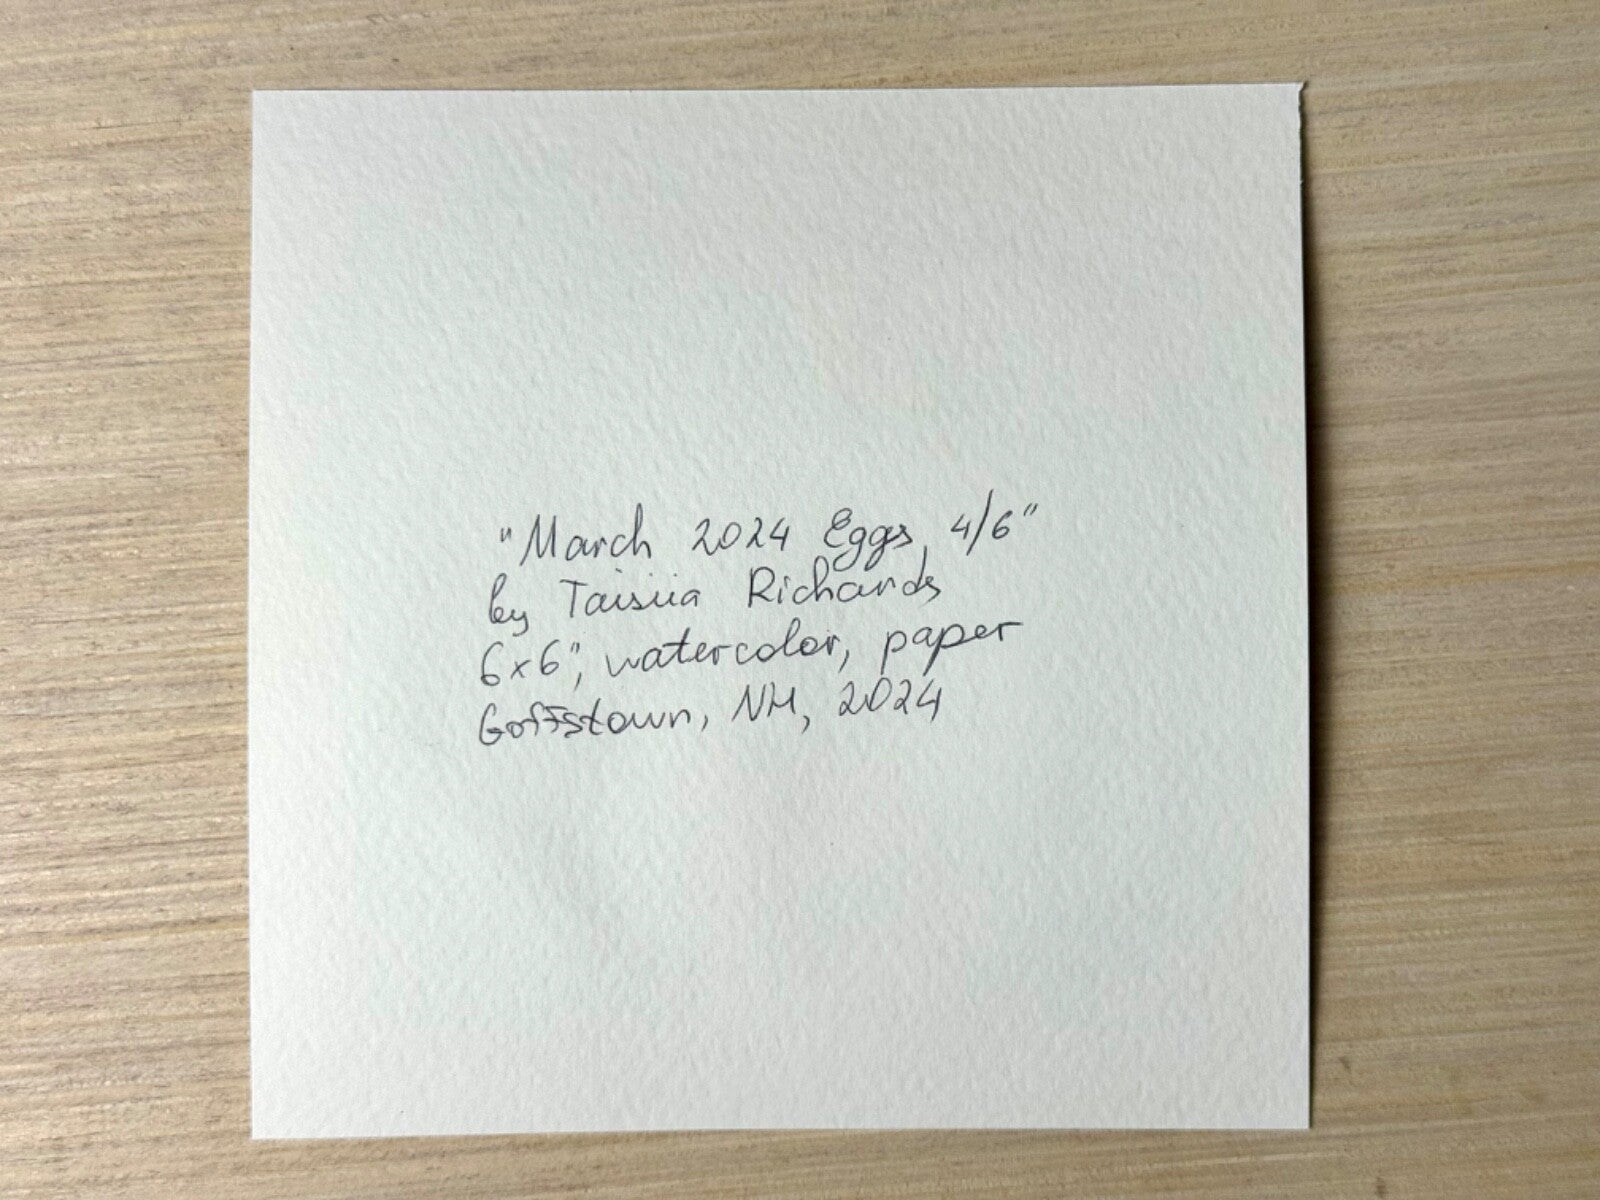 "March 2024 Eggs, 4/6"
by Taisiia Richards
6x6", watercolor, paper
Goffstown, NH, 2024